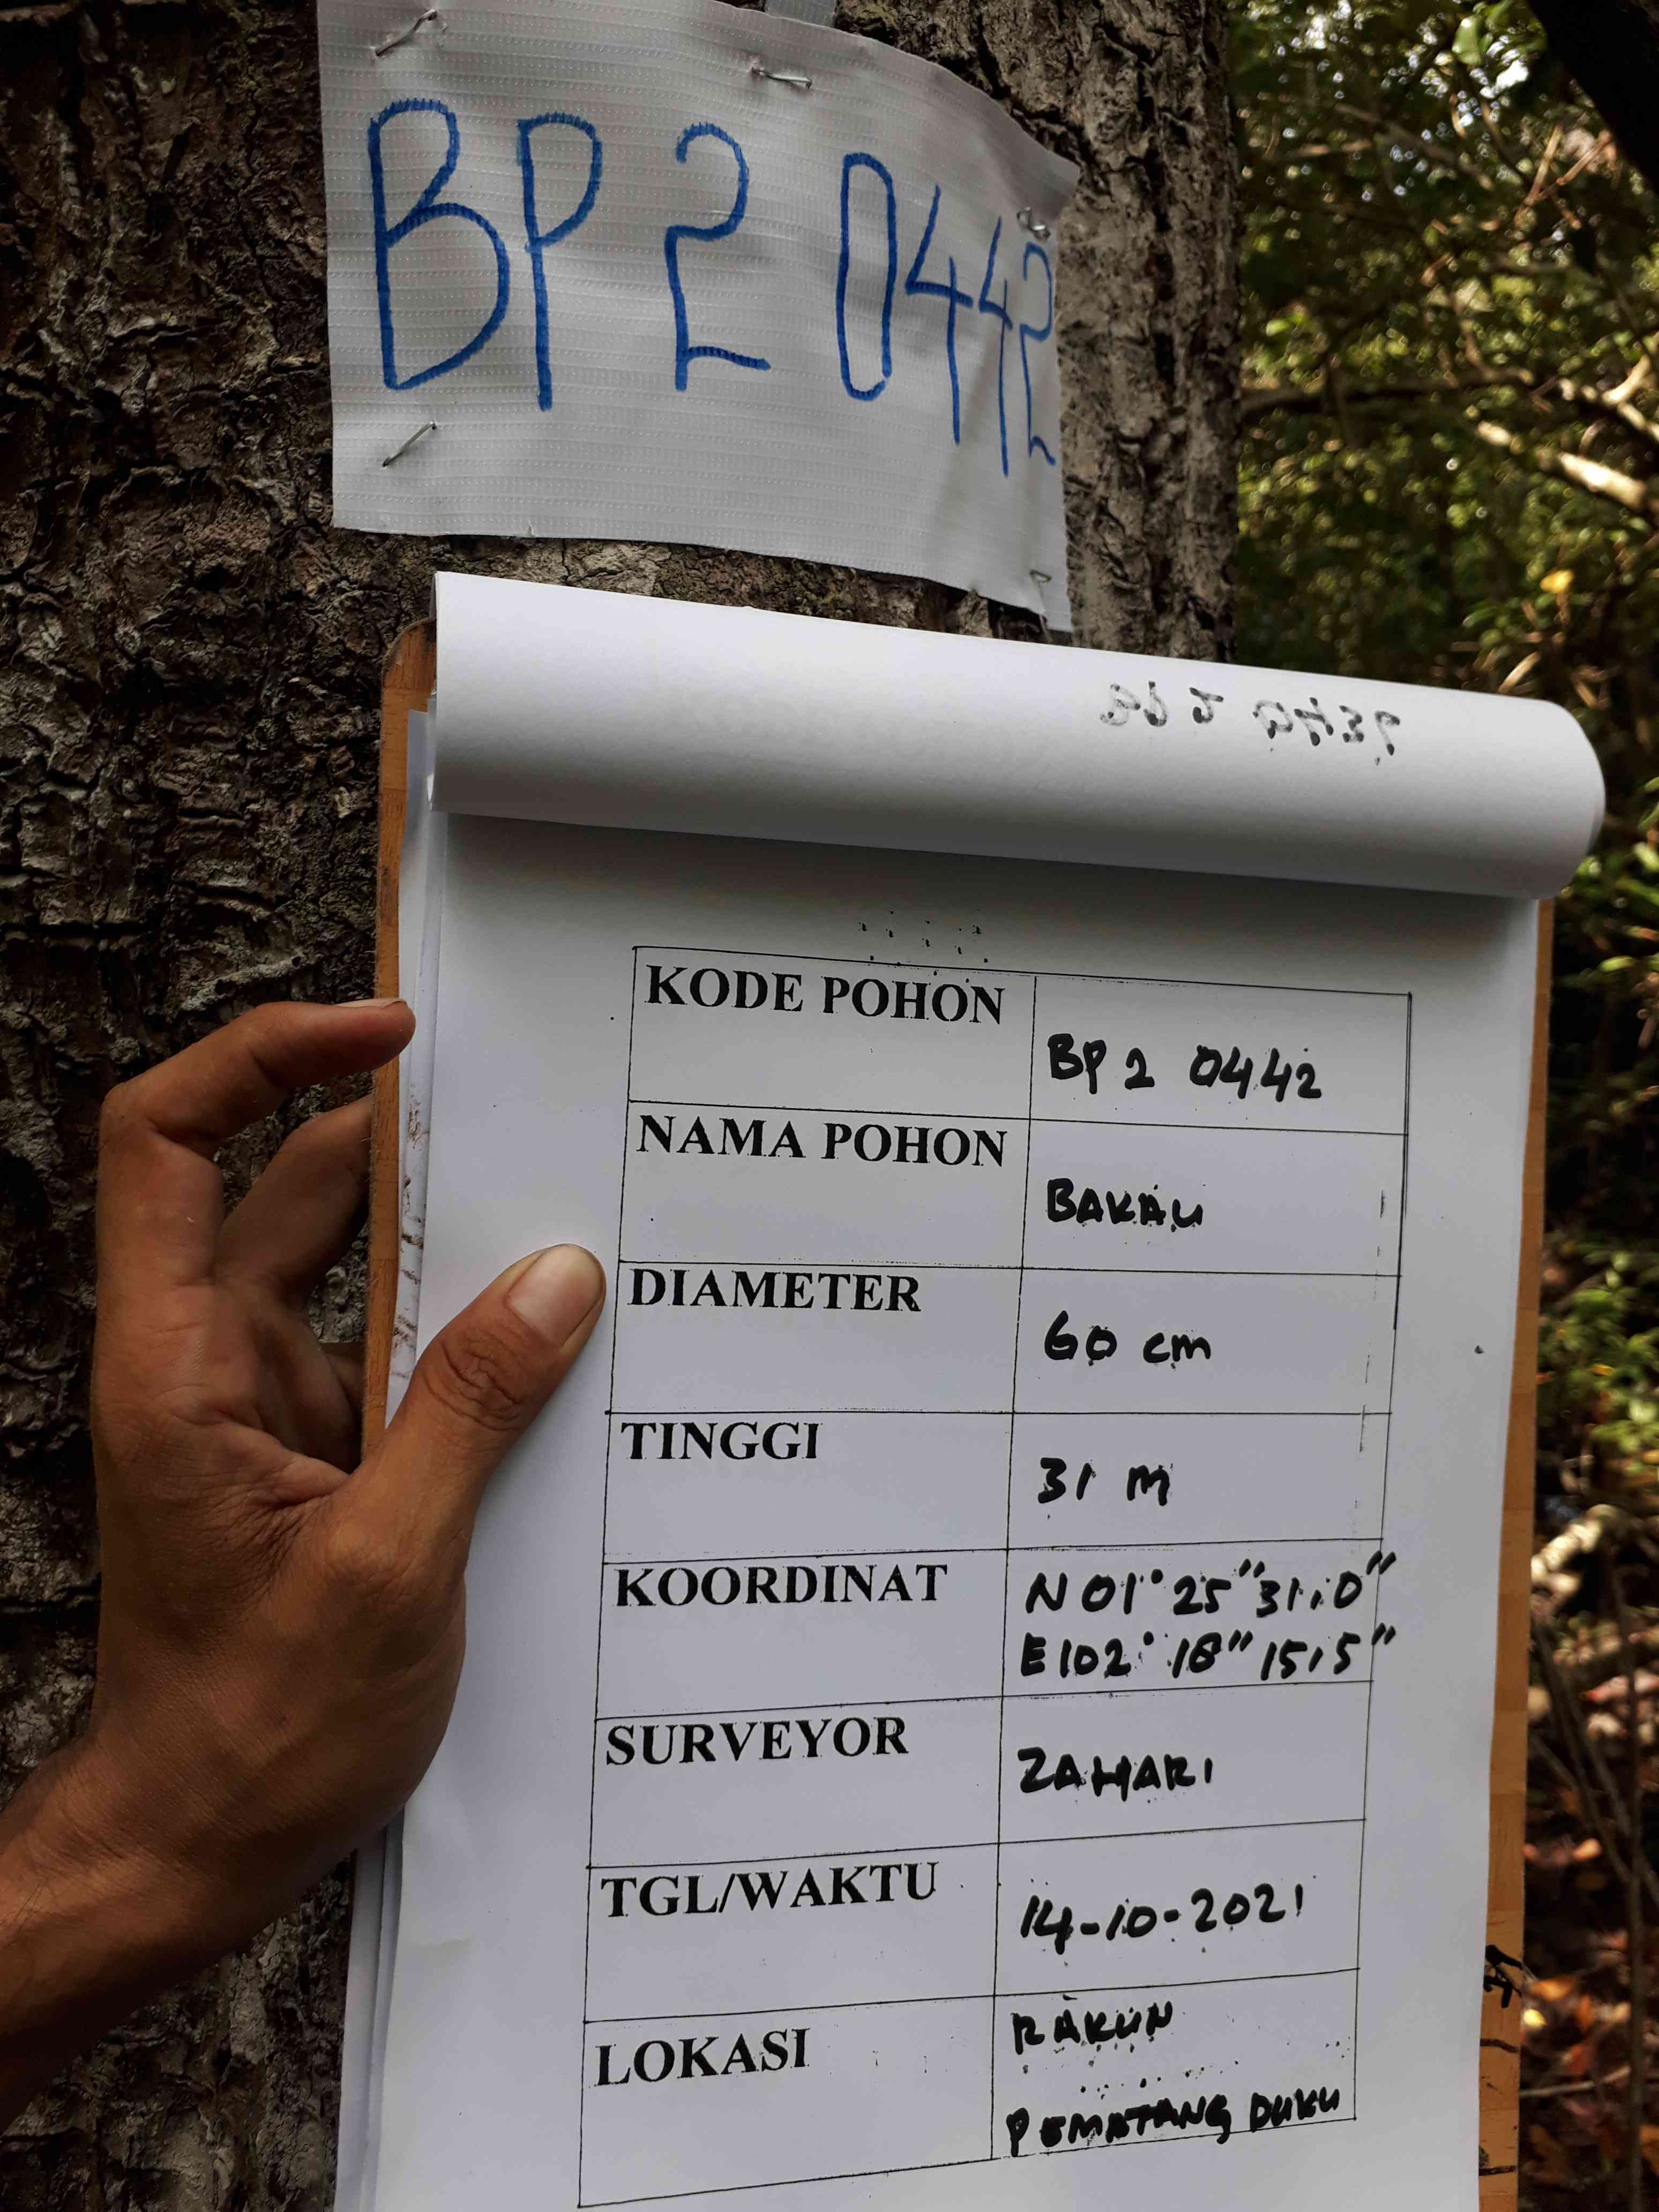 BP 2 0442
KODE POHON
BP 2 0442
NAMA POHON
BAKAU
DIAMETER
60 cm
TINGGI
31 m
KOORDINAT
N 01° 25" 31,0"
E 102° 18" 15,5"
SURVEYOR
ZAHARI
TGL/WAKTU
14-10-2021
LOKASI
RAKUN
PEMATANG DUKU